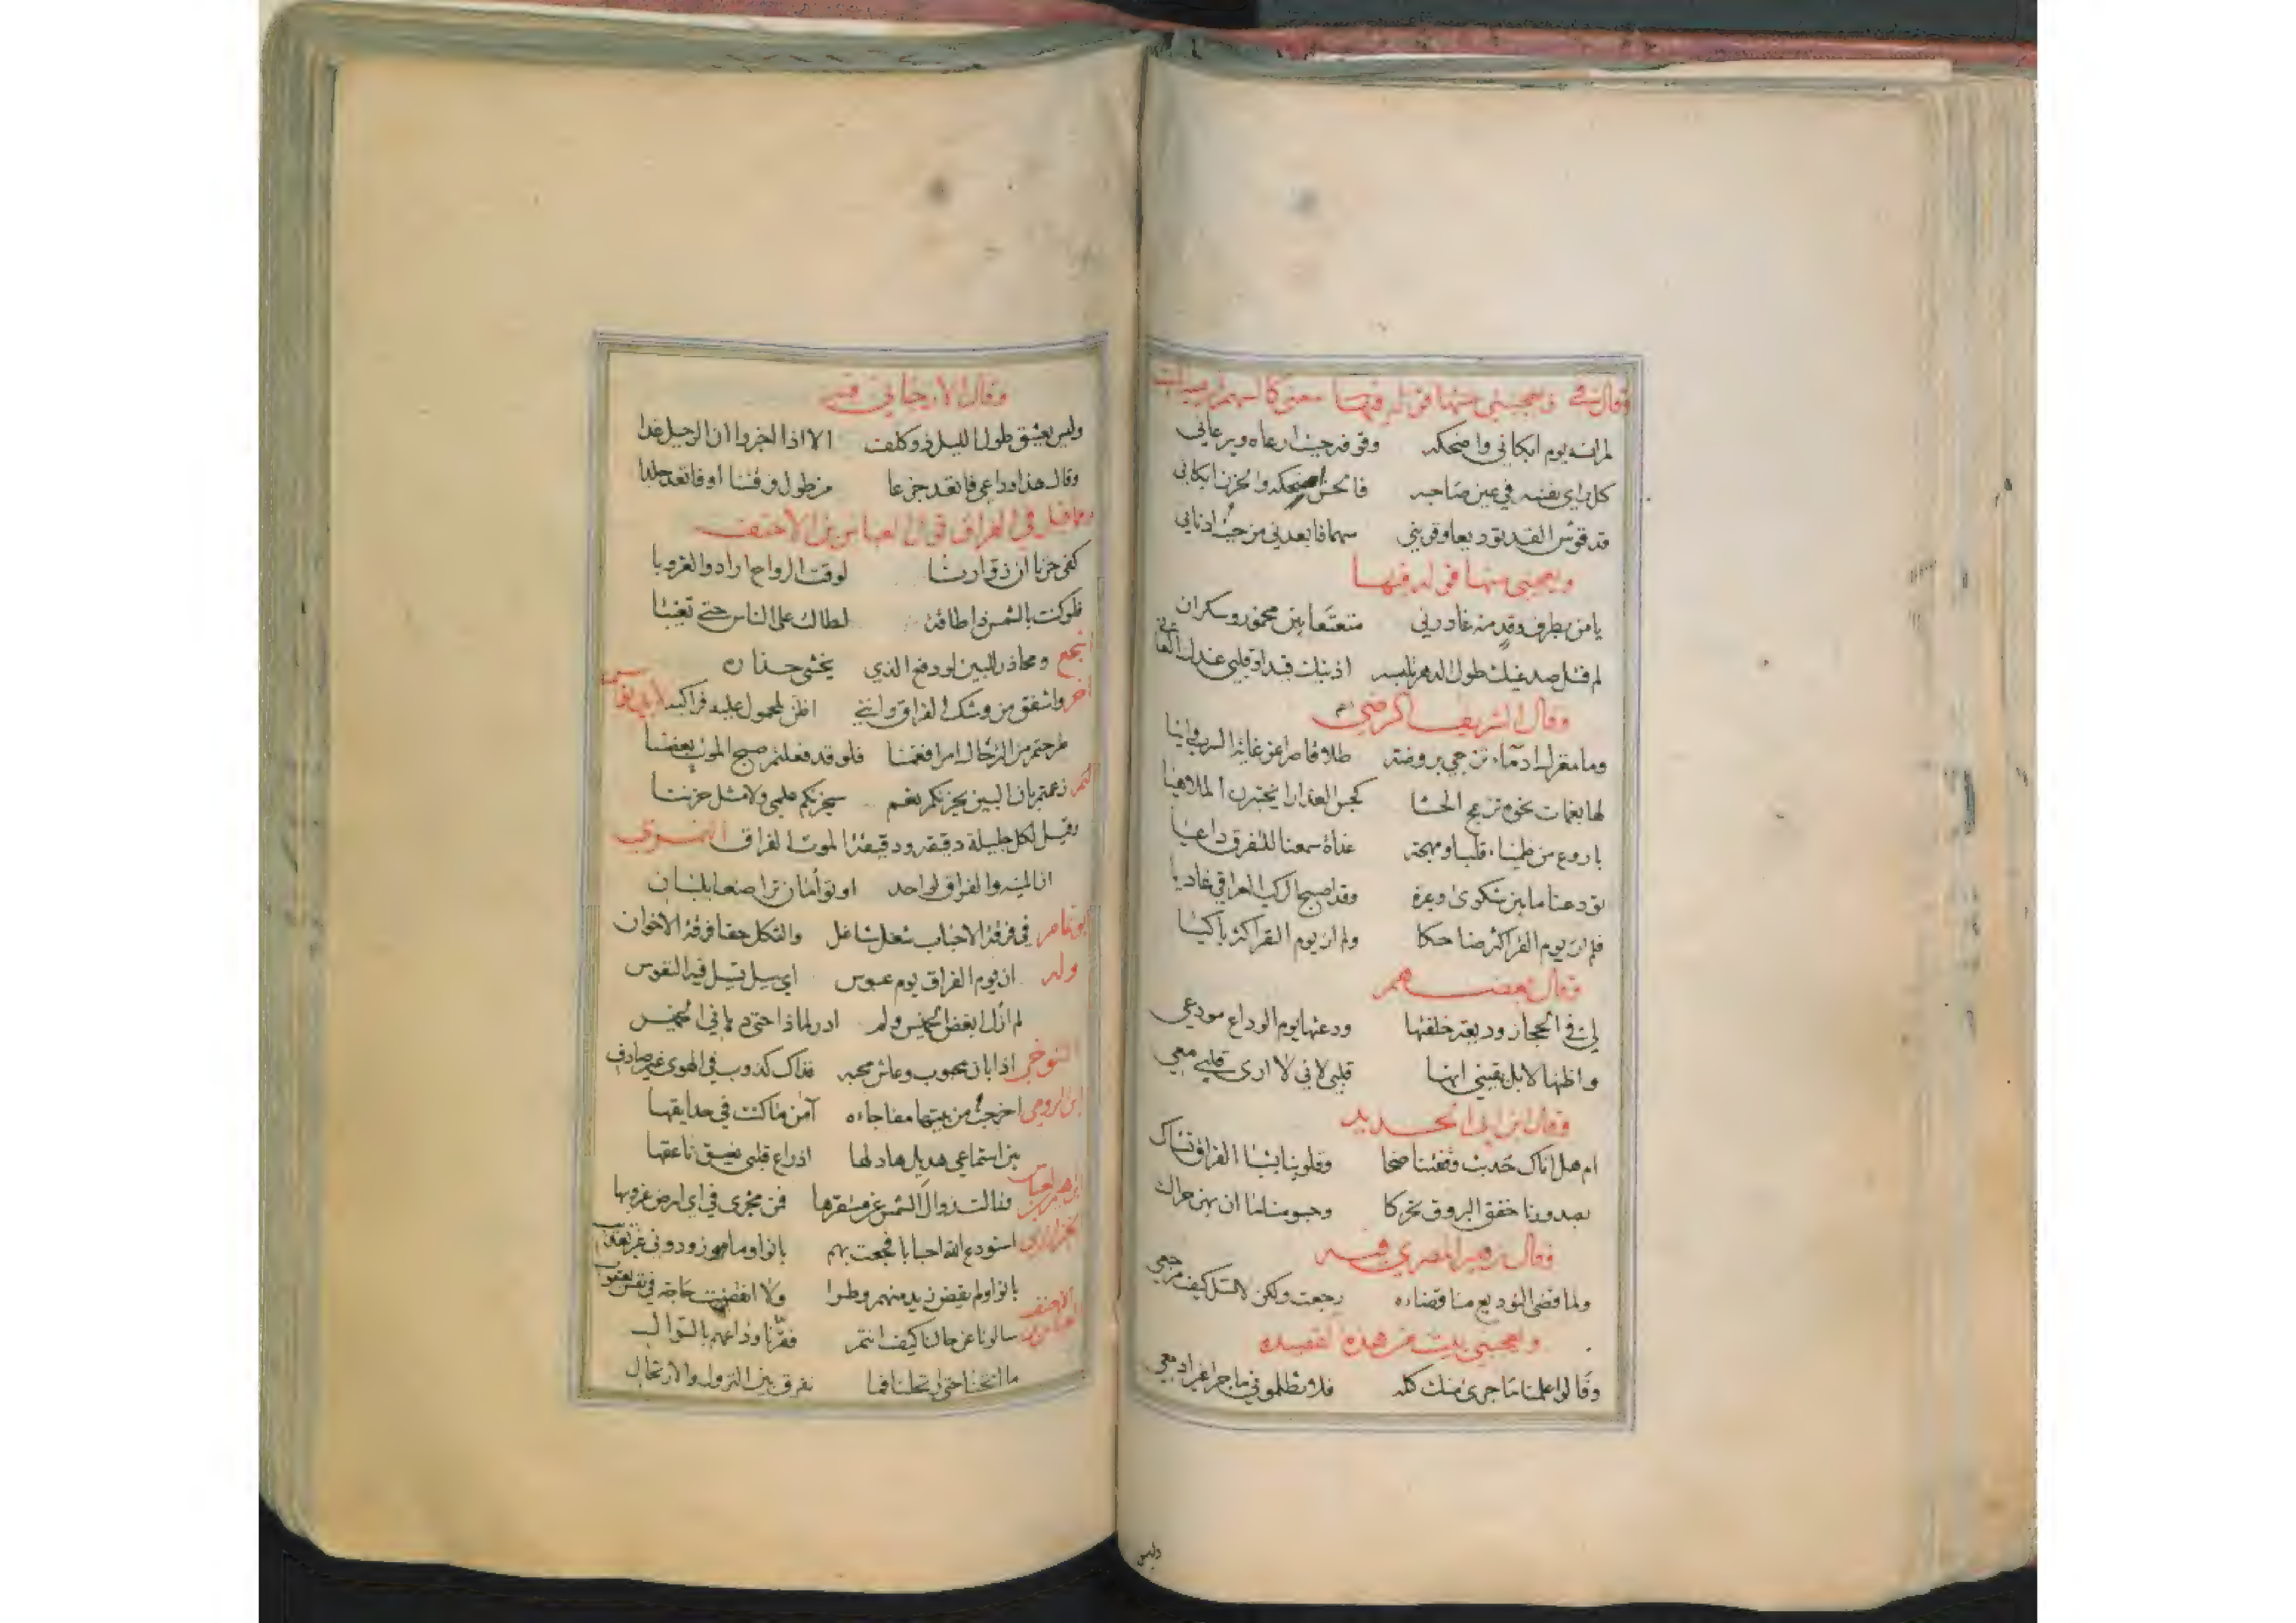 لم انسه يوم ابكاني واضحكه وقوفه حيث ارعاه ويرعاني
كل راى نفسه في عين صاحبه فالحسن اضحكه والحزن ابكاني
قد قوس القد توديعا وقربني سهما فابعدني من حيث ادناني
ويعجبني منها قوله فيها
يا من بطرف وقد منه غادرني متعتعا بين مخمور وسكران
وقال الشريف الرضي
وما مغزل ادماء تزجي بروضة طلا قاصرا عن غاية السرب وانيا
لها بغمات خوه تزعج الحشا كجس العذارا يختبرن الملاهيا
باروع من ظمياء قلبا ومهجة غداة سمعنا للتفرق داعيا
تودعنا ما بين شكوى وعبرة وقد اصبح الركب العراقي غاديا
فلم ار يوم النفر اكثر ضاحكا ولم ار يوم النفر اكثر باكيا
وقال بعضهم
لي في الحجاز وديعة خلفتها ودعتها يوم الوداع مودعي
واظنها لا بل يقيني انها قلبي لاني لا ارى قلبي معي
وقال ابن ابي الحديد
ام هل اتاك حديث وقفتنا ضحا وقلوبنا بشبا الفراق تشاك
بصدورنا خفق البروق تحركا وجسومنا ما ان بهن حراك
وقال زهير المصري فيه
ولما قضى التوديع منا قضاءه رجعت ولكن لا تسل كيف مرجعي
ويعجبني بيت من هذه القصيدة
وقالوا علمنا ما جرى منك كله فلا تظلموني ما جرا غير ادمعي
وليس
وقال الارجاني فيه
وليس يعشق طول الليل ذو كلف الا اذا اخبروا ان الرحيل غدا
وقال هذا وداعي فانعقد جزعا من طول وقفتنا او فانعقد جلدا
ومما قيل في الفراق قول العباس بن الاحنف
كفى حزنا ان زوارنا لوقت الرواح ارادوا الغروبا
فلو كنت بالشمس ذا طاقة لطال على الناس حتى تغيبا
اشجع ومحاذر للبين اودفع الذي يخشى حذاره
اخر واشفق من وشك الفراق وانني اظن لمحمول عليه فراكبه
زعمتم بان البين يحزنكم نعم سيحزنكم علمي ولا مثل حزننا
وقيل لكل جليلة دقيقة ودقيقة الموت الفراق
ان المنية والفراق لواحد او توأمان تراضعا بلبان
ابو تمام في فرقة الاحباب شغل شاغل والثكل حقا فرقة الاخوان
وله ان يوم الفراق يوم عبوس اي سيل تسيل فيه النفوس
لم ازل ابغض الخميس ولم ادر لماذا حتى دهاني الخميس
التنوخي اذا بان محبوب وعاش محبه فذاك كذوب في الهوى غير صادق
ابن الرومي اخرجت من جنتها مفاجاءه آمن ما كنت في حدايقها
بين استماعي هديل هادلها اذ راع قلبي نعيق ناعقها
وقالت زوال الشمس عن مستقرها فمن مخبري في اي ارض غروبها
استودع الله احبابا فجعت بهم بانوا وما زودوني غير تعذيب
بانوا ولم يقض زيد منهم وطرا ولا انقضت حاجة في نفس يعقوب
سالونا عن حالنا كيف انتم فقرنا وداعهم بالسوال
ما انخنا حتى ارتحلنا فما نفرق بين النزول والارتحال